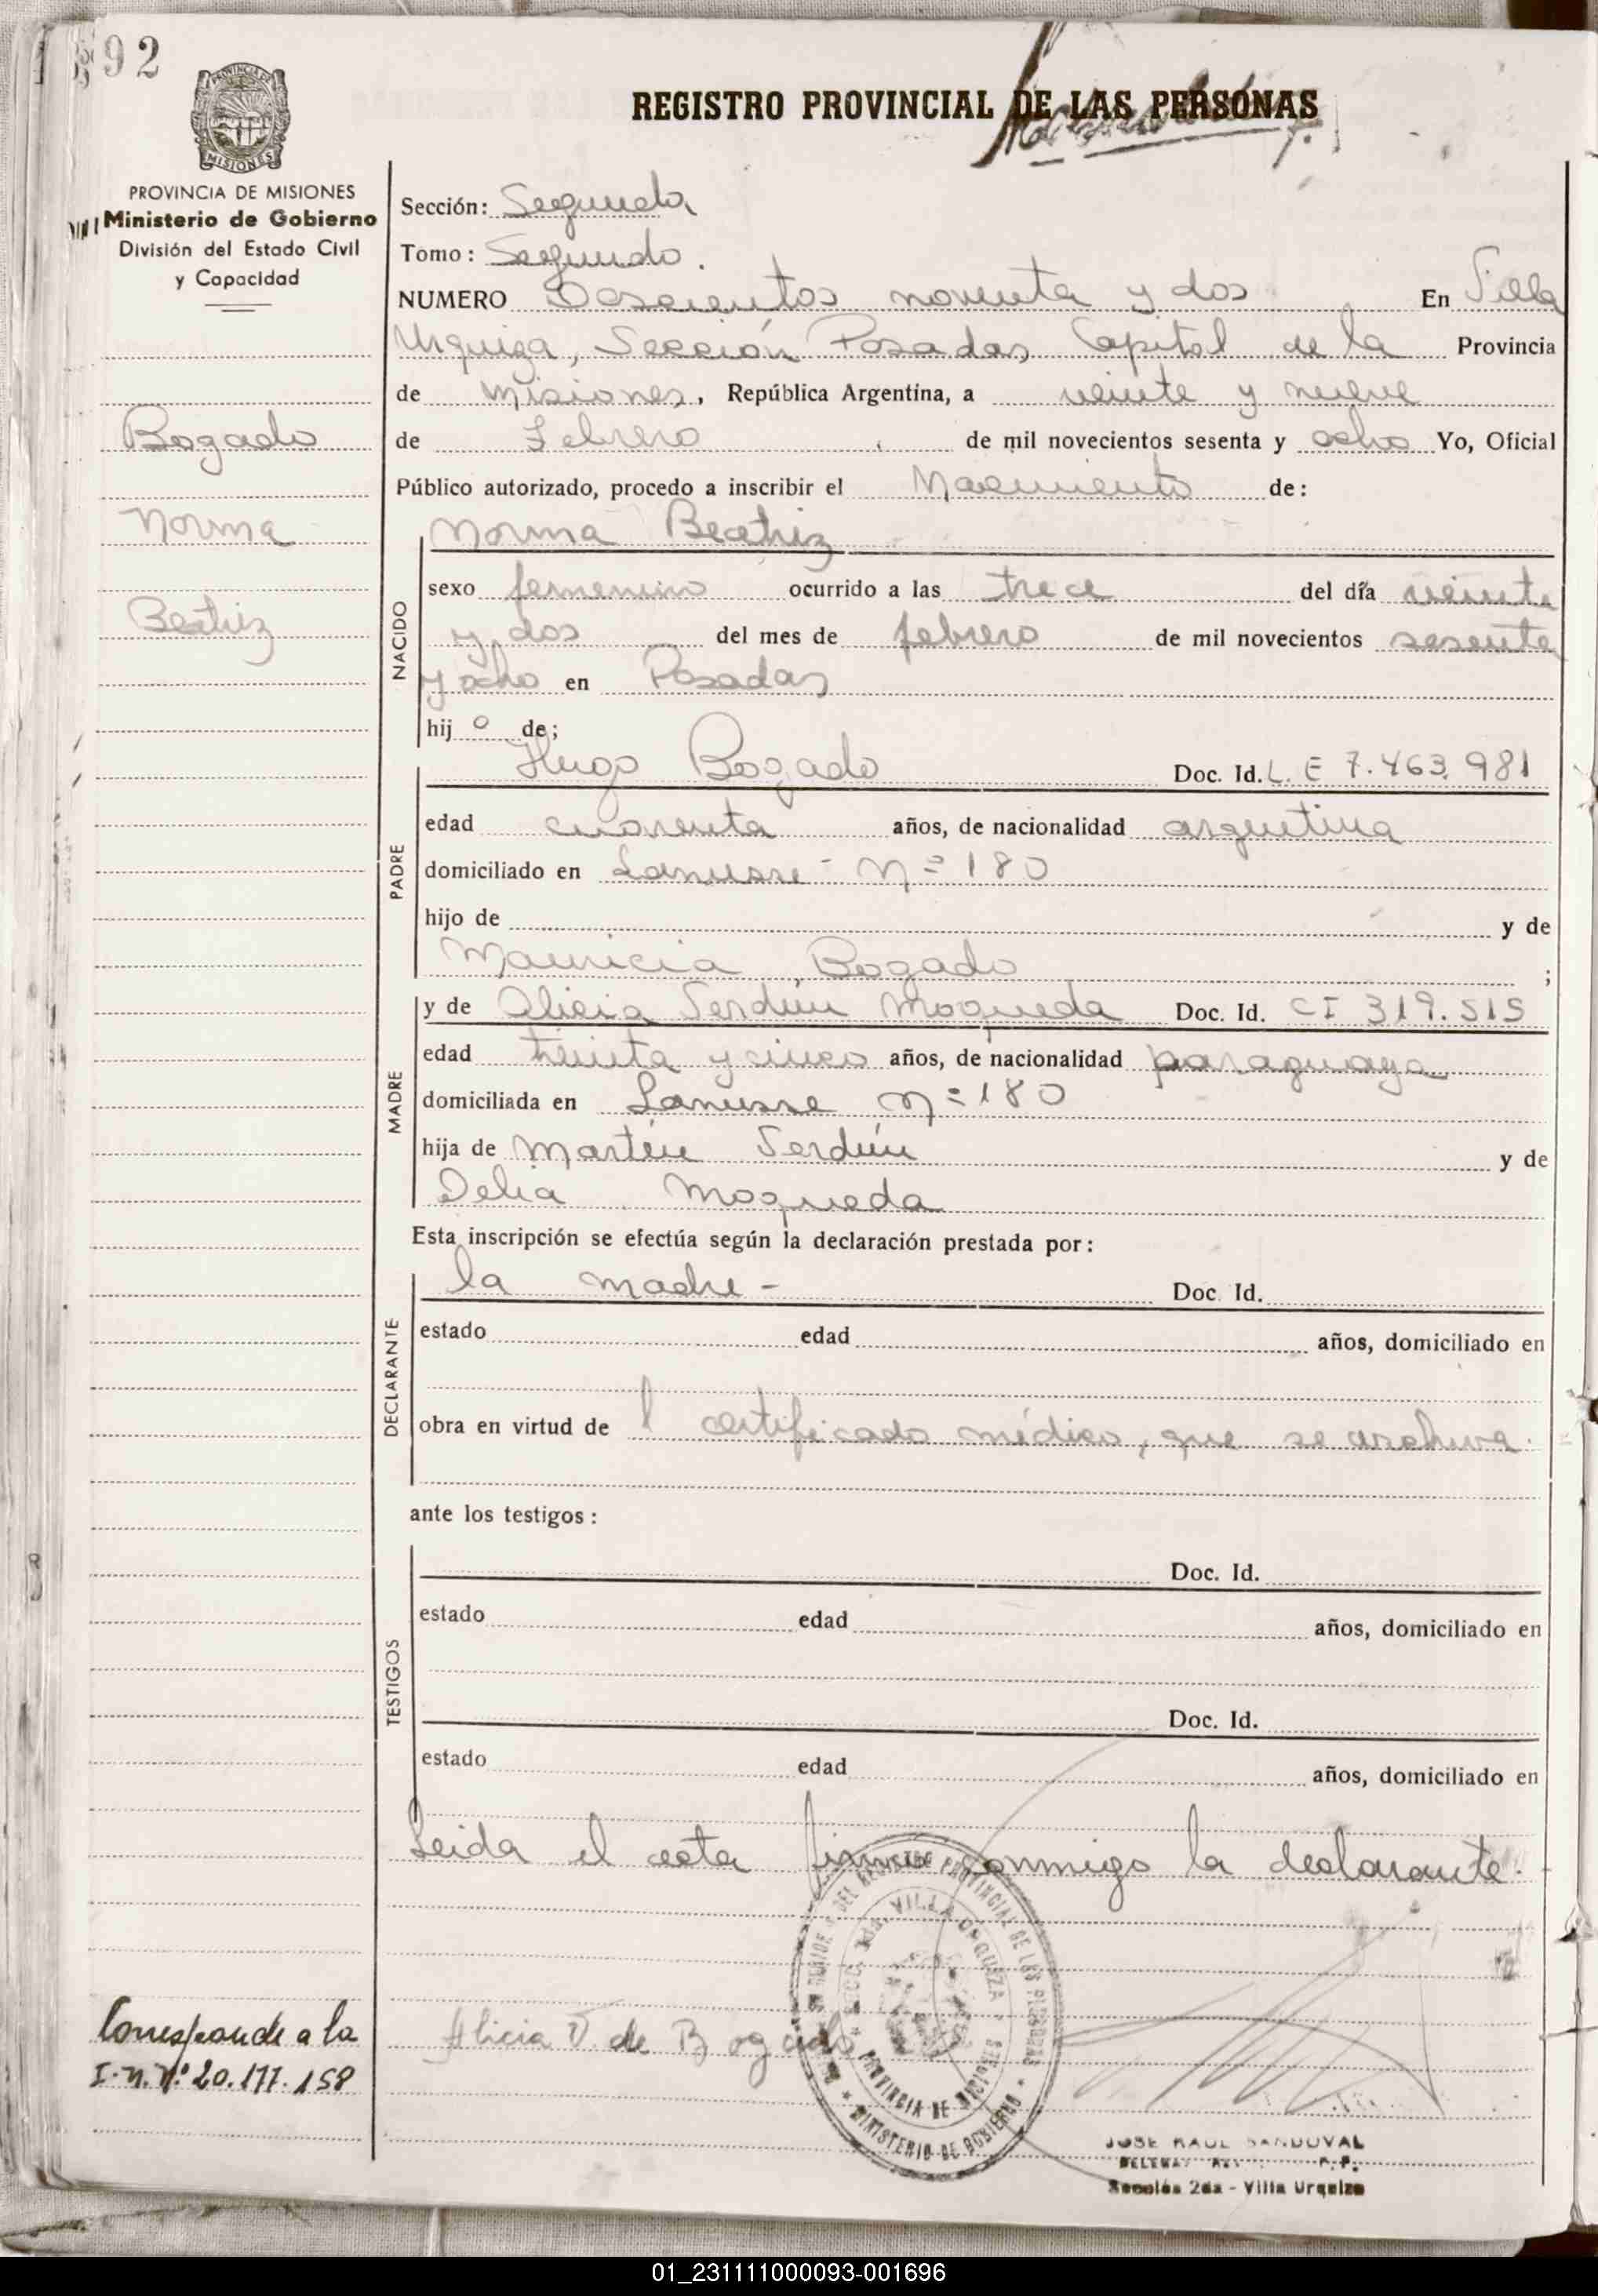 592
PROVINCIA DE MISIONES
MISIONES
REGISTRO PROVINCIAL DE LAS PERSONAS
PROVINCIA DE MISIONES
Ministerio de Gobierno
División del Estado Civil
y Capacidad
Sección: Segunda
Tomo: Segundo.
NUMERO Doscientos noventa y dos En Villa
Urquiza, Sección Posadas, Capital de la Provincia
de Misiones, República Argentina, a veinte y nueve
Bogado
de Febrero de mil novecientos sesenta y ocho Yo, Oficial
Público autorizado, procedo a inscribir el Nacimiento de:
Norma
Norma Beatriz
NACIDO
sexo femenino ocurrido a las trece del día veinte
Beatriz
y dos del mes de febrero de mil novecientos sesenta
y ocho en Posadas
hij o de;
PADRE
Hugo Bogado Doc. Id. L. E 7.463.981
edad cuarenta años, de nacionalidad argentina
domiciliado en Lanusse - Nº 180
hijo de y de
Mauricia Bogado ;
MADRE
y de Alicia Verdún Moqueda Doc. Id. CI 319.515
edad treinta y cinco años, de nacionalidad paraguaya
domiciliada en Lanusse nº 180
hija de Martín Verdún y de
Delia Moqueda
Esta inscripción se efectúa según la declaración prestada por:
DECLARANTE
la madre - Doc. Id.
estado edad años, domiciliado en
obra en virtud de l certificado médico, que se archiva.
ante los testigos:
TESTIGOS
Doc. Id.
estado edad años, domiciliado en
Doc. Id.
estado edad años, domiciliado en
Leida el acta firma conmigo la declarante.
DEL REGISTRO PROVINCIAL DE LAS PERSONAS
SECC. 2da. VILLA URQUIZA
PROVINCIA DE MISIONES
MINISTERIO DE GOBIERNO
Corresponde a la
I.N. Nº 20.177.158
Alicia V. de Bogado
JOSE RAUL SANDOVAL
Sección 2da - Villa Urquiza
01_231111000093-001696